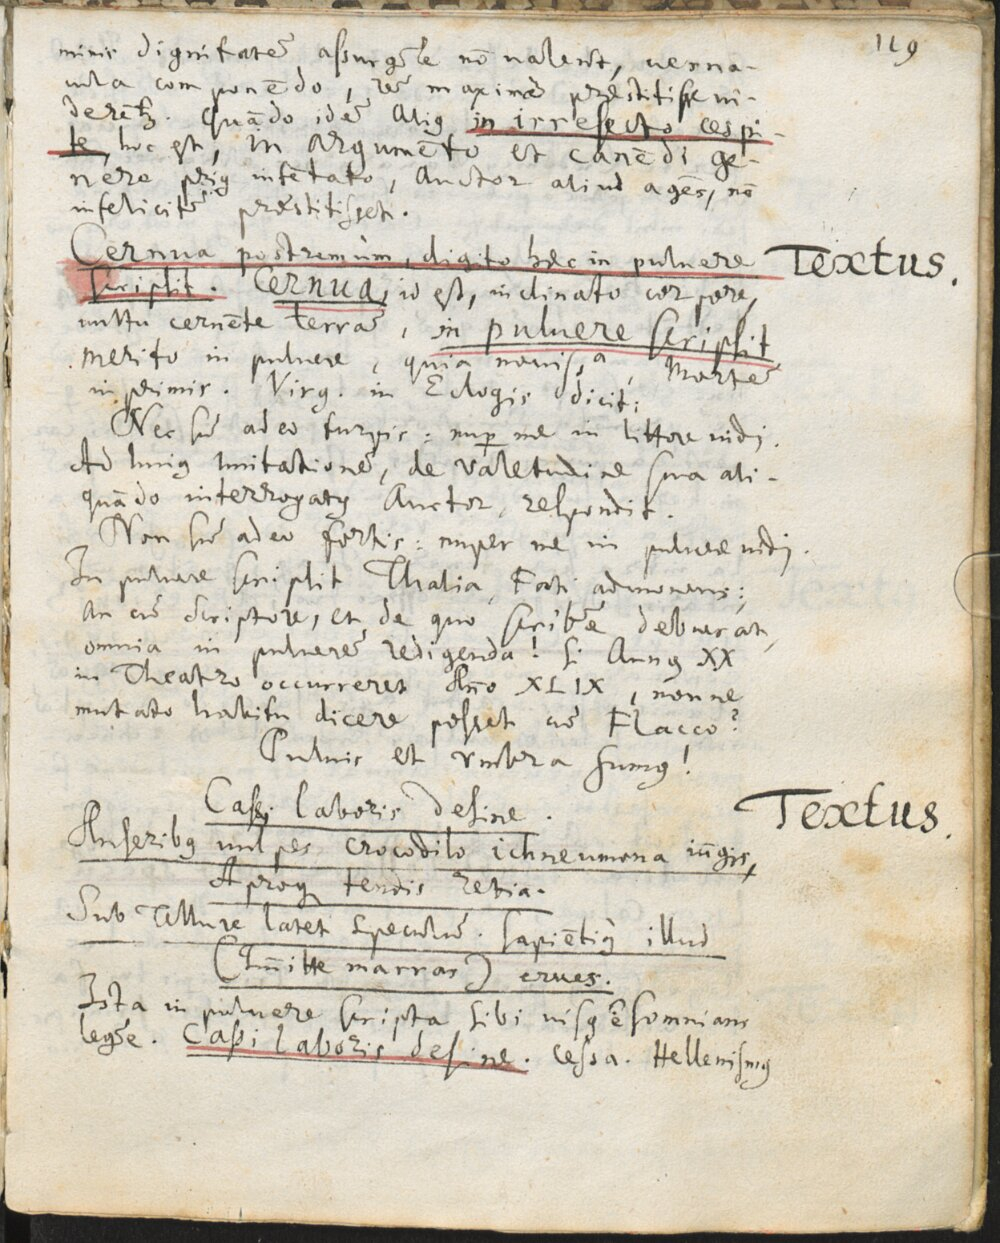 119
minis dignitatē assurgēre nō valent, verna-
cula componēdo, rē maximā præstitisse vi-
derēt. Quādo idē aliq in irresecto cespi-
te, hoc est, in Argumēto et canēdi ge-
nere priq intētato, Auctor aliud agēs, nō
infelicitē præstitisset.
Cernua postremùm, digito hæc in pulvere Textus.
scripsit. Cernua, id est, inclinato corpore,
vultu cernēte terrā, in pulvere scripsit
merito in pulvere, quia novissa, Mortē
inprimis. Virg. in Eclogis dicit:
Nec sū adeo turpis: nup me in littore vidj.
Ad huiq imitationē, de valetudine sua ali-
quādo interrogatq Auctor, respondit.
Non sū adeo fortis: nuper me in pulvere vidj.
In pulvere scripsit Thalia, Fati admonens;
an cū scriptore, et de quo scribēe debuerat,
omnia in pulverē redigenda! Si Annq XX
in Theatro occurreret Āno XLIX, nonne
mutato habitu dicere posset cū Flacco?
Pulvis et umbra sumq!
Cassi laboris desine. Textus.
Anseribq vulpes, crocodilo ichneumona iūgis,
Aproq tendis retia.
Sub tellure latet speculū. sapiētiq illud
(Im̄itte marras) erues.
Ista in pulvere scripta sibi visq ē somnians
legēe. Cassi laboris desine. Cessa. Hellenismq